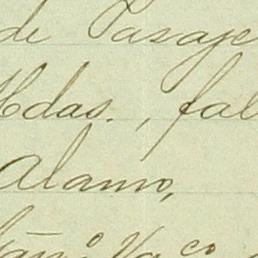 de Pasaje
Hdas., fal
Alamo,